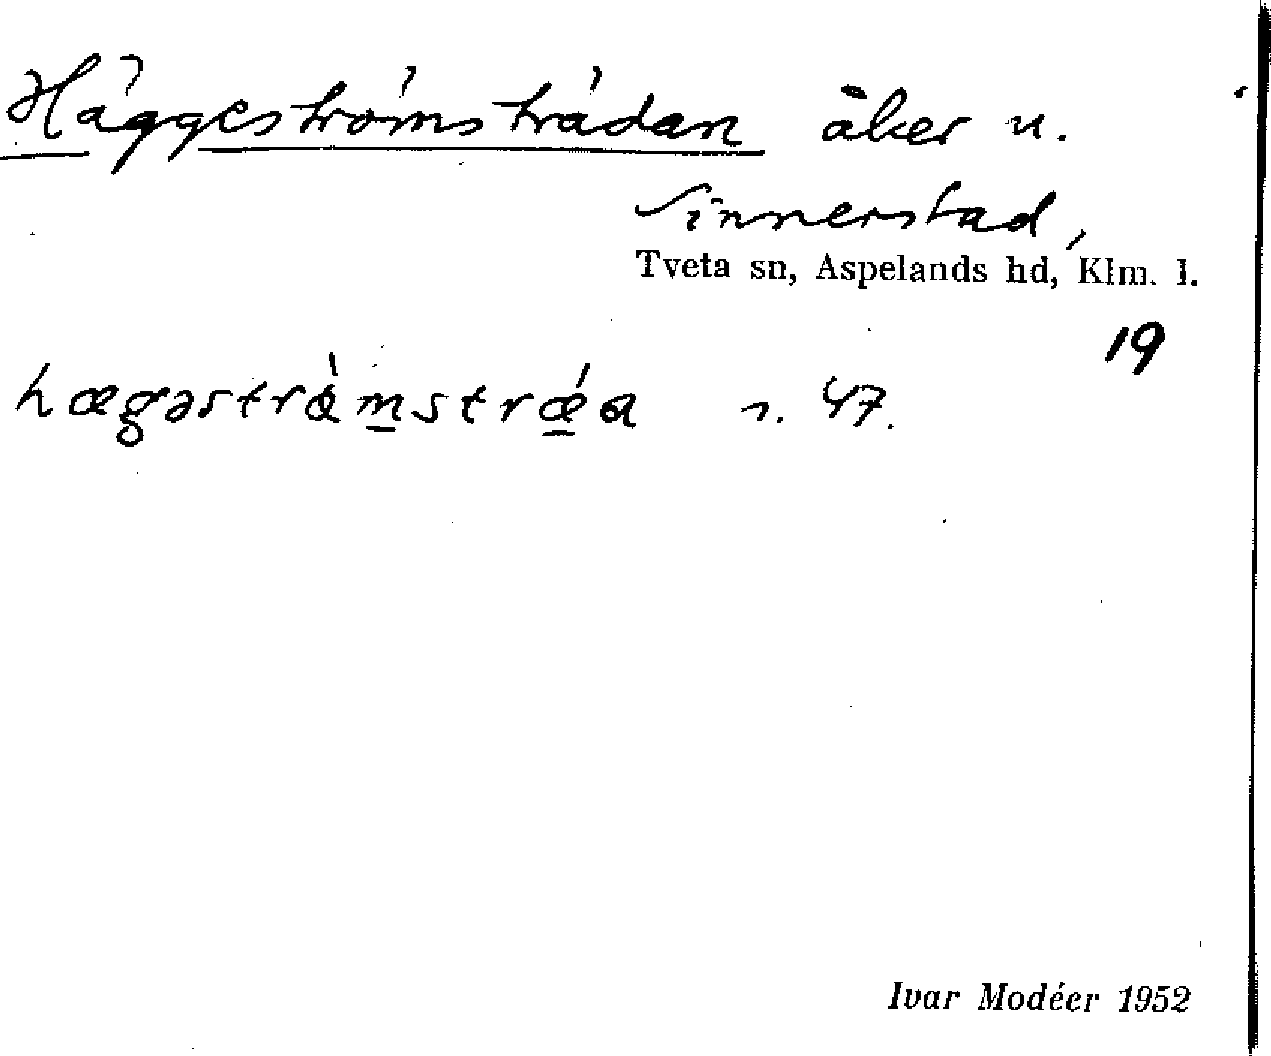 Häggeströmsträdan åker u.
Sinnerstad,
Tveta sn, Aspelands hd, Klm. l.
19
hægəstrǿmstrǽa s. 47.
Ivar Modéer 1952